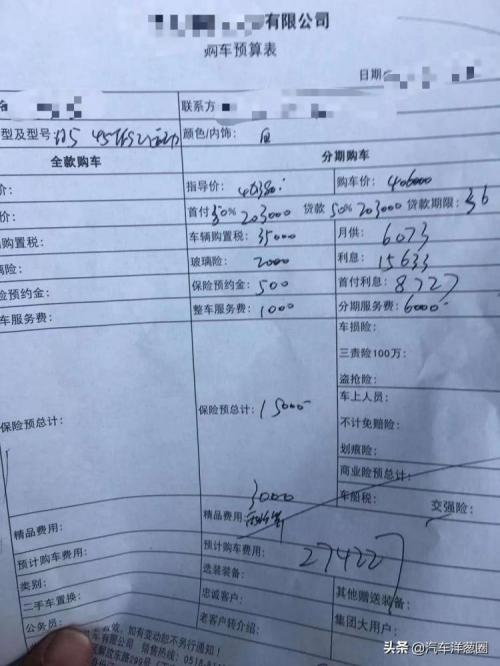 有限公司
购车预算表
日期
联系方
型及型号: Q5 45TFSI 颜色/内饰: 白
全款购车 分期购车
价: 指导价: 购车价: 406000
价: 首付50% 203000 贷款50% 203000 贷款期限: 36
购置税: 车辆购置税: 35000 月供: 6073
璃险: 玻璃险: 2000 利息: 15633
险预约金: 保险预约金: 500 首付利息: 8727
车服务费: 整车服务费: 1000 分期服务费: 6000
车损险:
三责险100万:
盗抢险:
保险预总计: 保险预总计: 15000 车上人员:
不计免赔险:
划痕险:
商业险预总计:
3000 车船税: 交强险:
精品费用: 精品费用:
预计购车费用: 预计购车费用: 274227
类别: 选装装备: 其他赠送装备:
二手车置换: 忠诚客户: 集团大用户:
公务员: 老客户转介绍:
效, 如有变动恕不另行通知!
车有限公司 销售热线: 0518-
解放东路299号
头条 @汽车洋葱圈